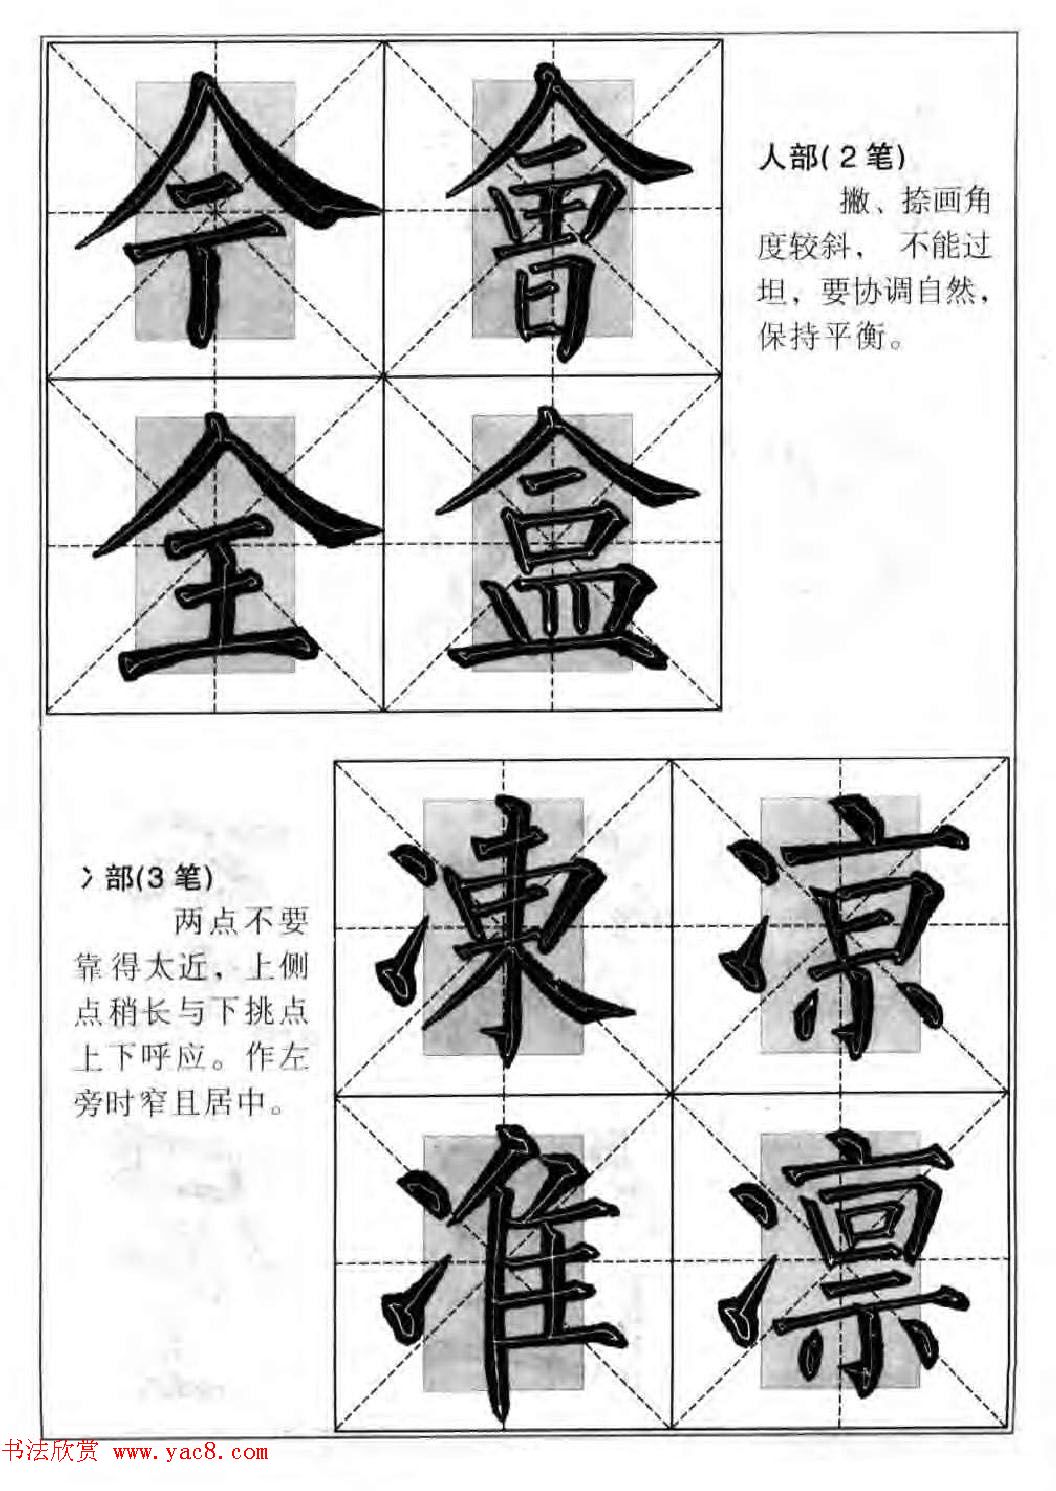 今 會
人部(2笔)
撇、捺画角
度较斜， 不能过
坦，要协调自然，
保持平衡。
全 盒
冫部(3笔)
两点不要
靠得太近，上侧
点稍长与下挑点
上下呼应。作左
旁时窄且居中。
凍 凉
准 凛
书法欣赏 www.yac8.com